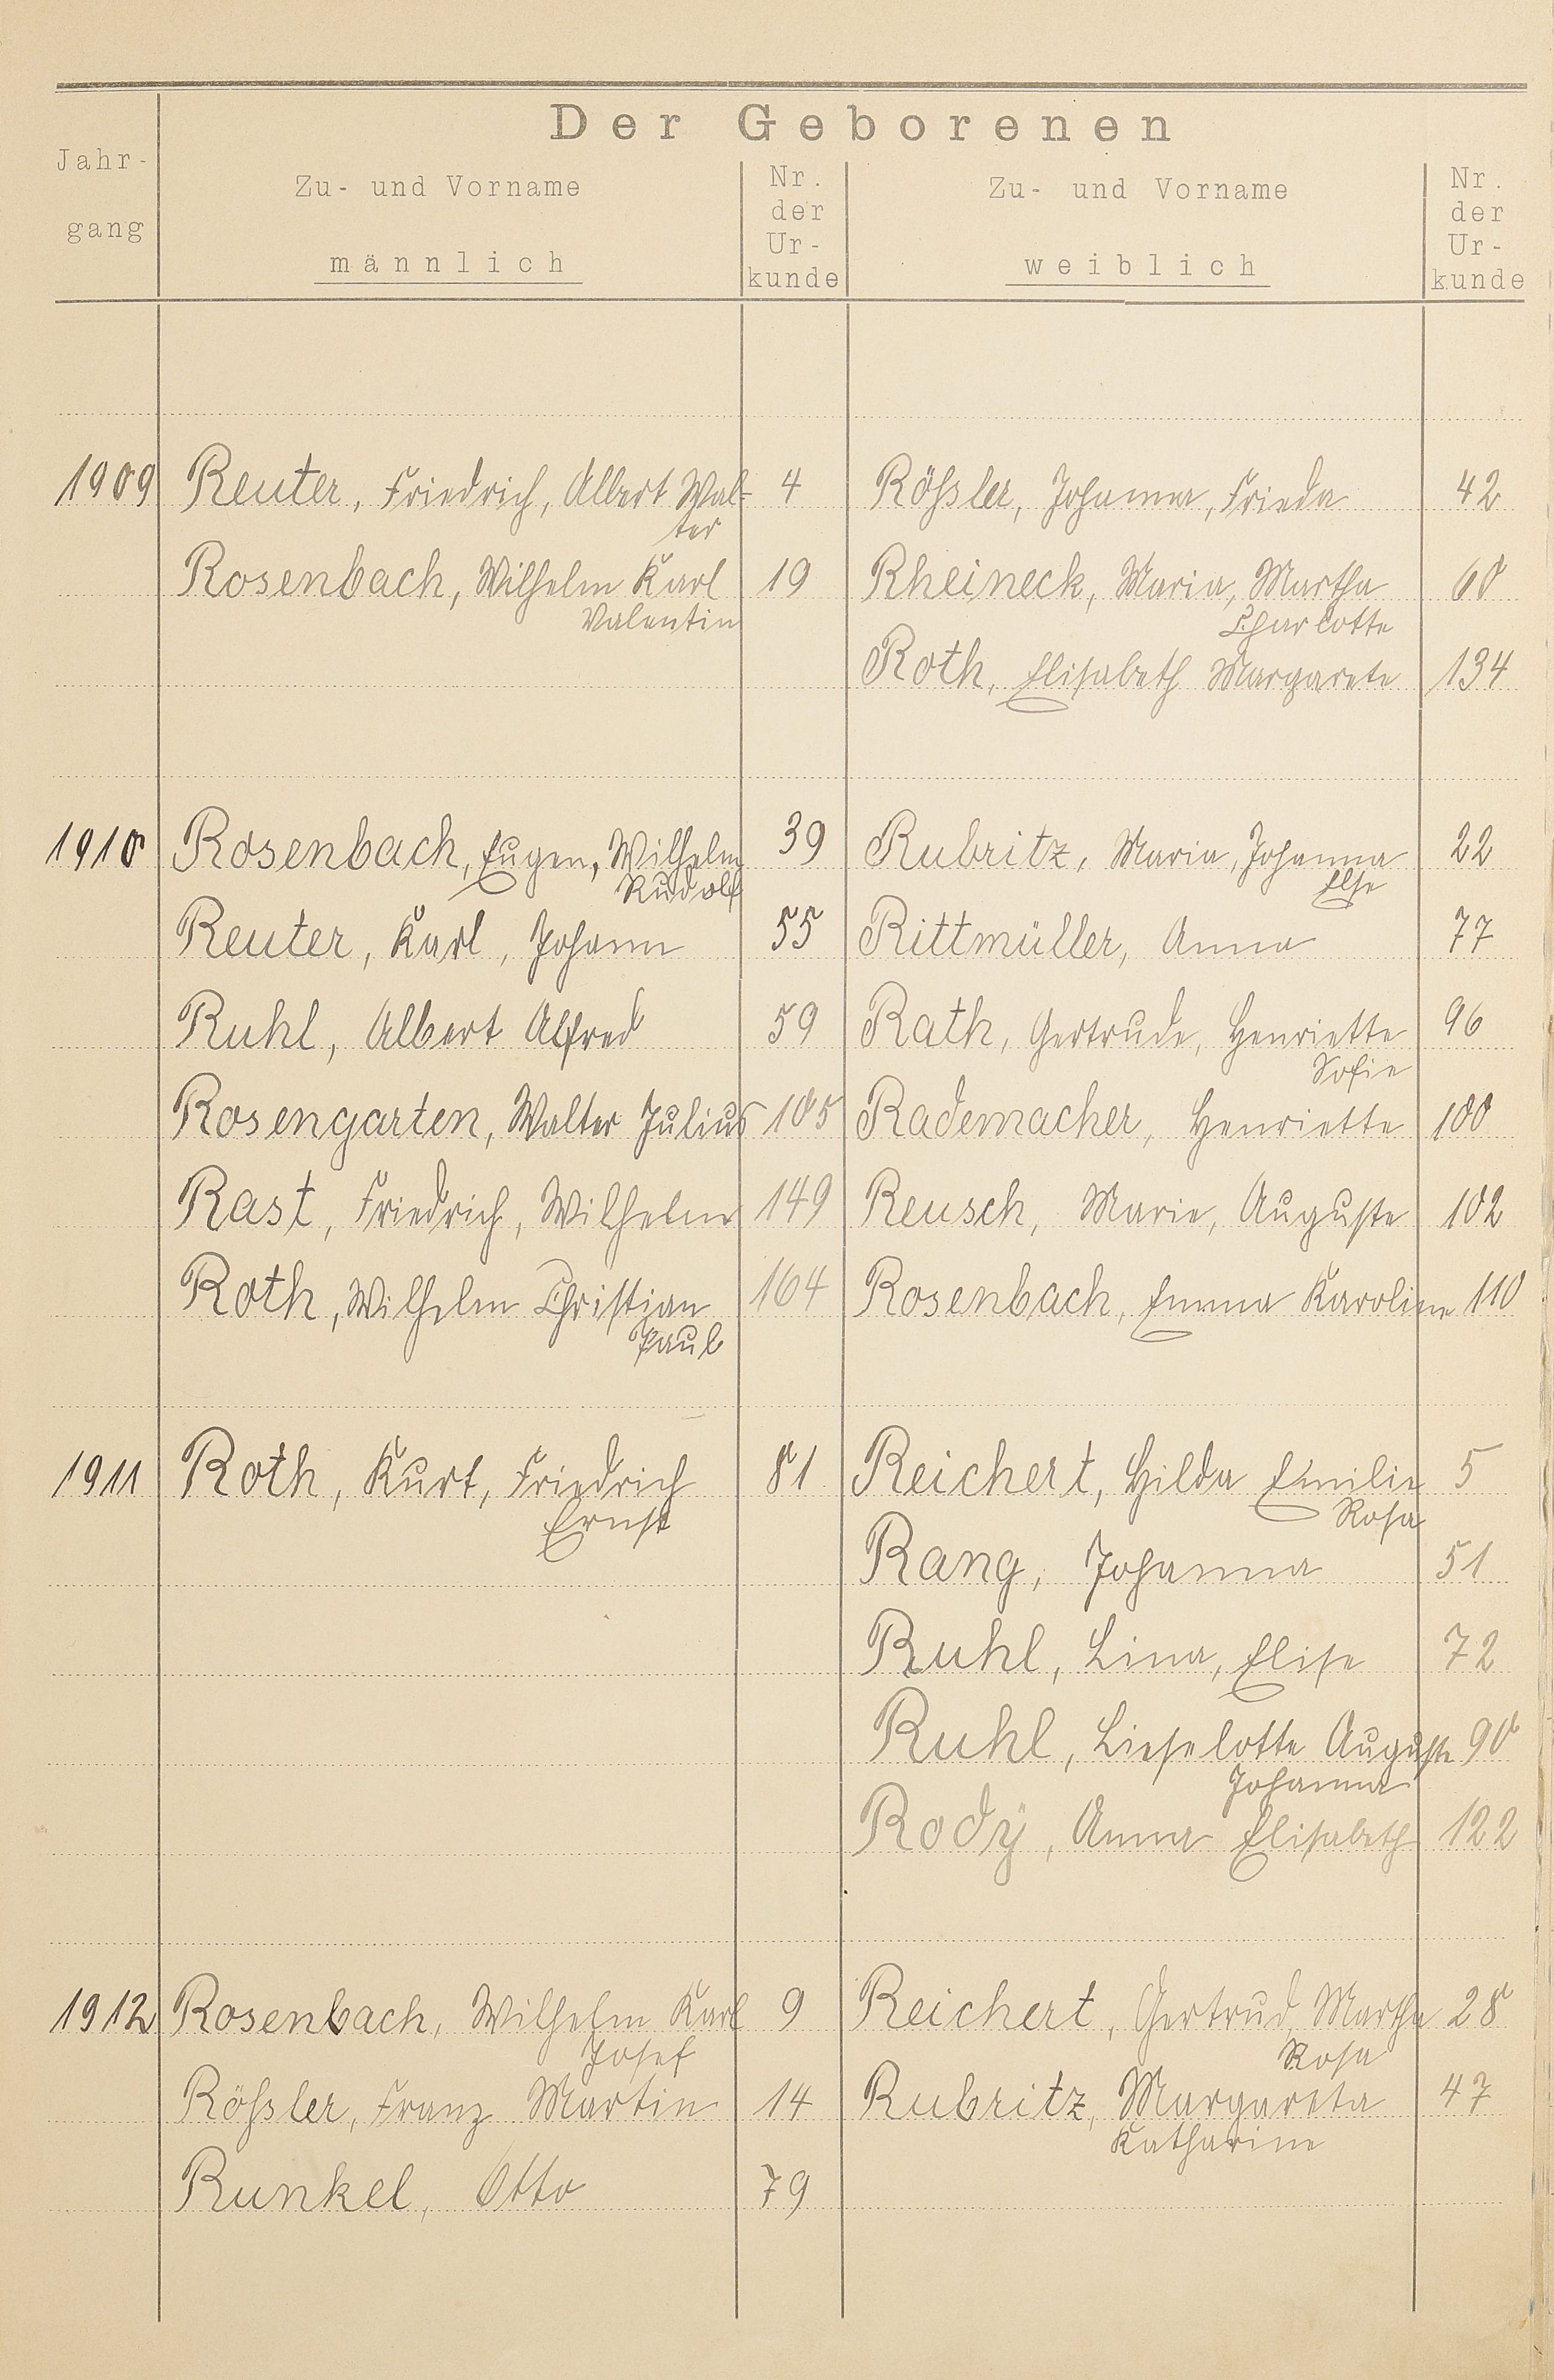 Der Geborenen
Jahr-
gang
Zu- und Vorname
männlich
Nr.
der
Ur-
kunde
Zu- und Vorname
weiblich
Nr.
der
Ur-
kunde
1909 Reuter, Friedrich, Albert Wal- 4 Rößler, Johanna, Frieda 42
ter
Rosenbach, Wilhelm Karl 19 Rheineck, Maria, Martha 60
Valentin Charlotte
Roth, Elisabeth Margarete 134
1910 Rosenbach, Eugen, Wilhelm 39 Rubritz, Maria, Johanna 22
Rudolf Else
Reuter, Karl, Johann 55 Rittmüller, Anna 77
Ruhl, Albert Alfred 59 Rath, Gertrude, Henriette 96
Sofie
Rosengarten, Walter Julius 105 Rademacher, Henriette 100
Rast, Friedrich, Wilhelm 149 Reusch, Marie, Auguste 102
Roth, Wilhelm Christian 164 Rosenbach, Emma Karoline 110
Paul
1911 Roth, Kurt, Friedrich 81 Reichert, Hilda Emilie 5
Ernst Rosa
Rang, Johanna 51
Ruhl, Lina, Elise 72
Ruhl, Lieselotte Auguste 90
Johanna
Rodÿ, Anna Elisabeth 122
1912 Rosenbach, Wilhelm Karl 9 Reichert, Gertrud, Martha 28
Josef Rosa
Rößler, Franz Martin 14 Rubritz, Margareta 47
Katharine
Runkel, Otto 79